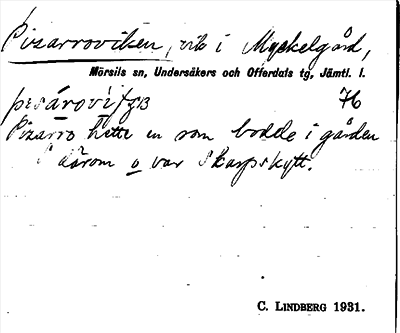 Pizarroviken, vik i Myckelgård,
Mörsils sn, Undersåkers och Offerdals tg, Jämtl. l.
76
Pizarro hette en som bodde i gården
därom o var skarpskytt.
C. LINDBERG 1931.